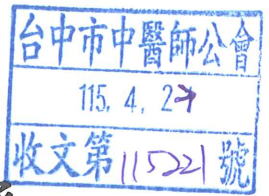 台中市中醫師公會
115. 4. 27
收文第115221號